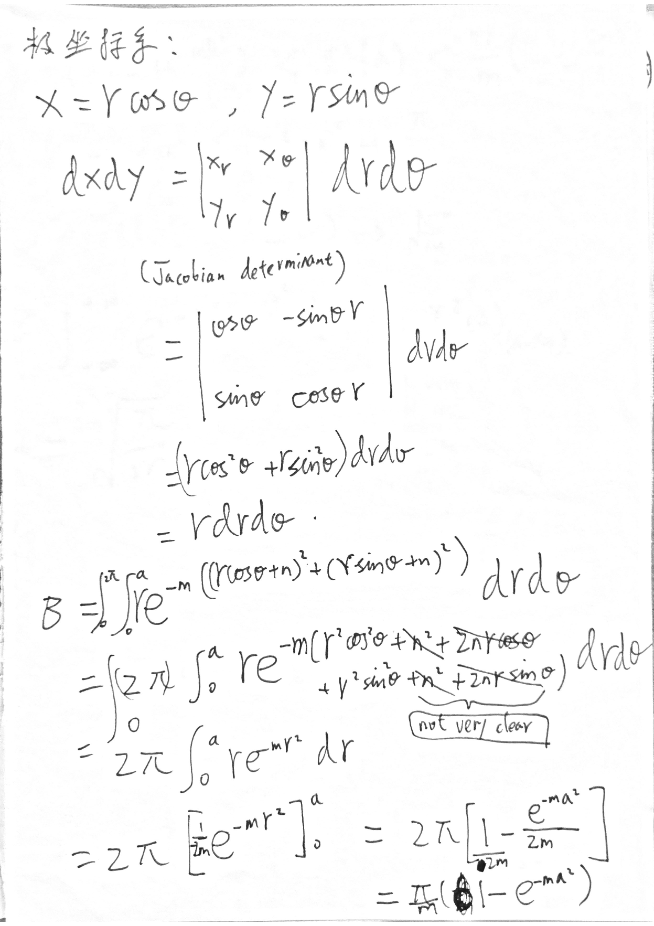 极坐标系:
x = r cosθ , y = r sinθ
dxdy = | x_r x_θ | drdθ
| y_r y_θ |
(Jacobian determinant)
= | cosθ -sinθ r | drdθ
| sinθ cosθ r |
= (r cos²θ + r sin²θ) drdθ
= r dr dθ .
B = ∫₀^{2π} ∫₀^a r e^{-m((r cosθ+n)² + (r sinθ+n)²)} drdθ
= ∫₀^{2π} ∫₀^a r e^{-m(r² cos²θ + n² + 2nr cosθ
+ r² sin²θ + n² + 2nr sinθ)} drdθ
not very clear
= 2π ∫₀^a r e^{-mr²} dr
= 2π [ 1/2m e^{-mr²} ]₀^a = 2π [ 1/2m - e^{-ma²}/2m ]
= π/m ( 1 - e^{-ma²} )